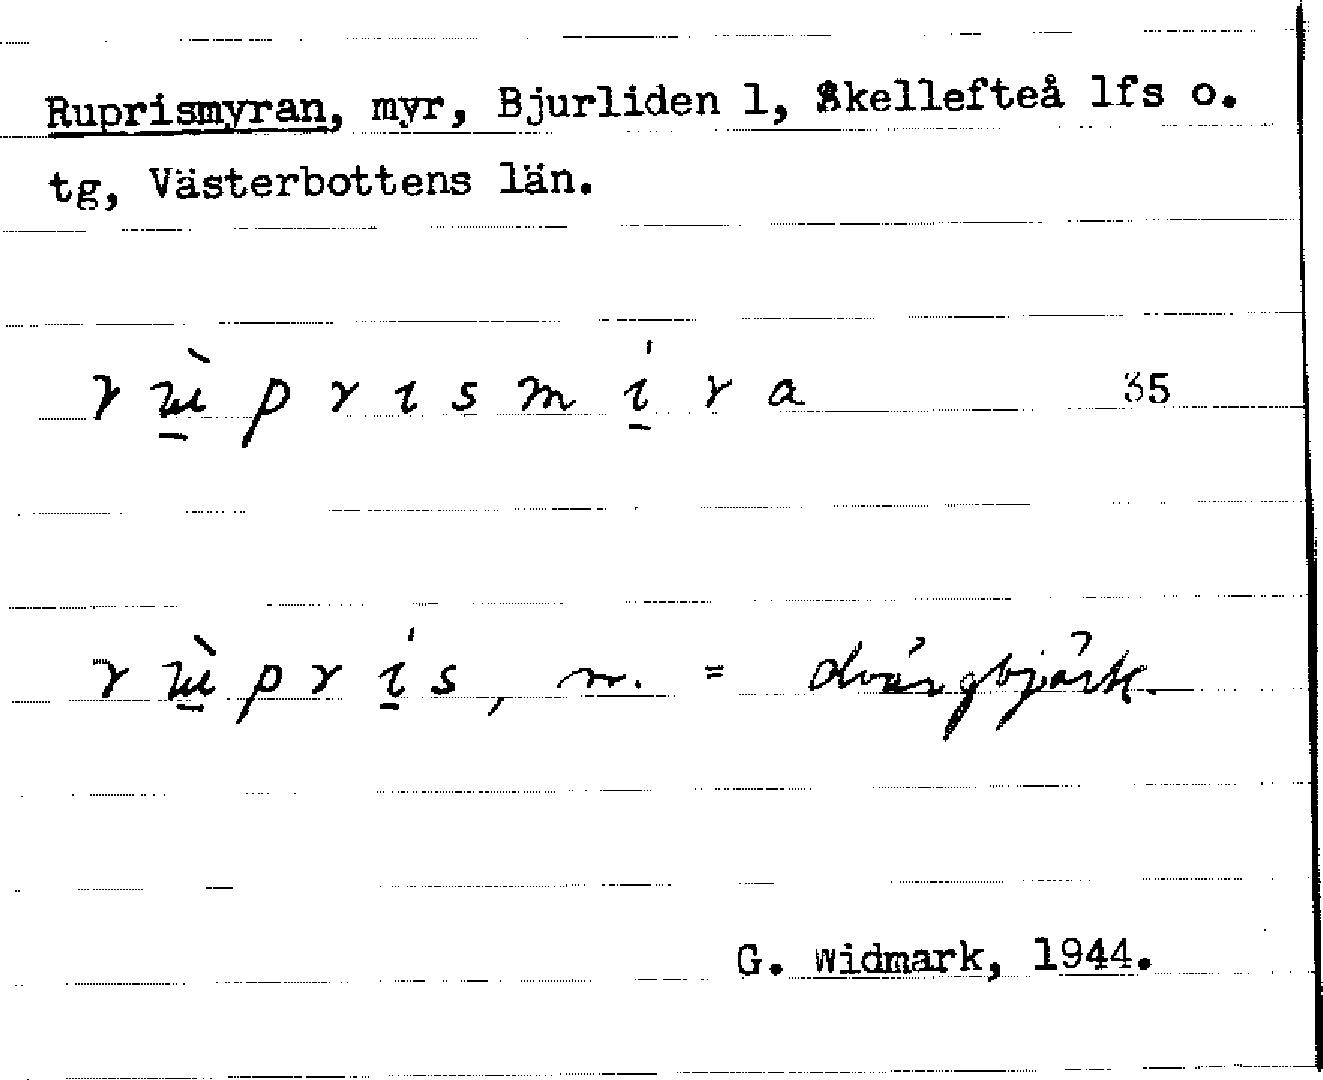 Ruprismyran, myr, Bjurliden 1, Skellefteå lfs o.
tg, Västerbottens län.
rɯ̱̀prɩsmɩ̱́ra 35
rɯ̱̀prɩ̱́s, m. = dvärgbjörk.
G. Widmark, 1944.